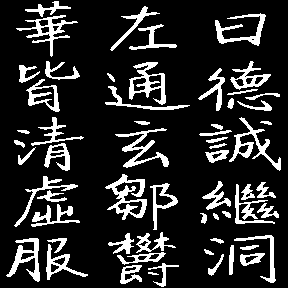 曰德誠繼洞
左通玄鄒欎
華皆清虛服